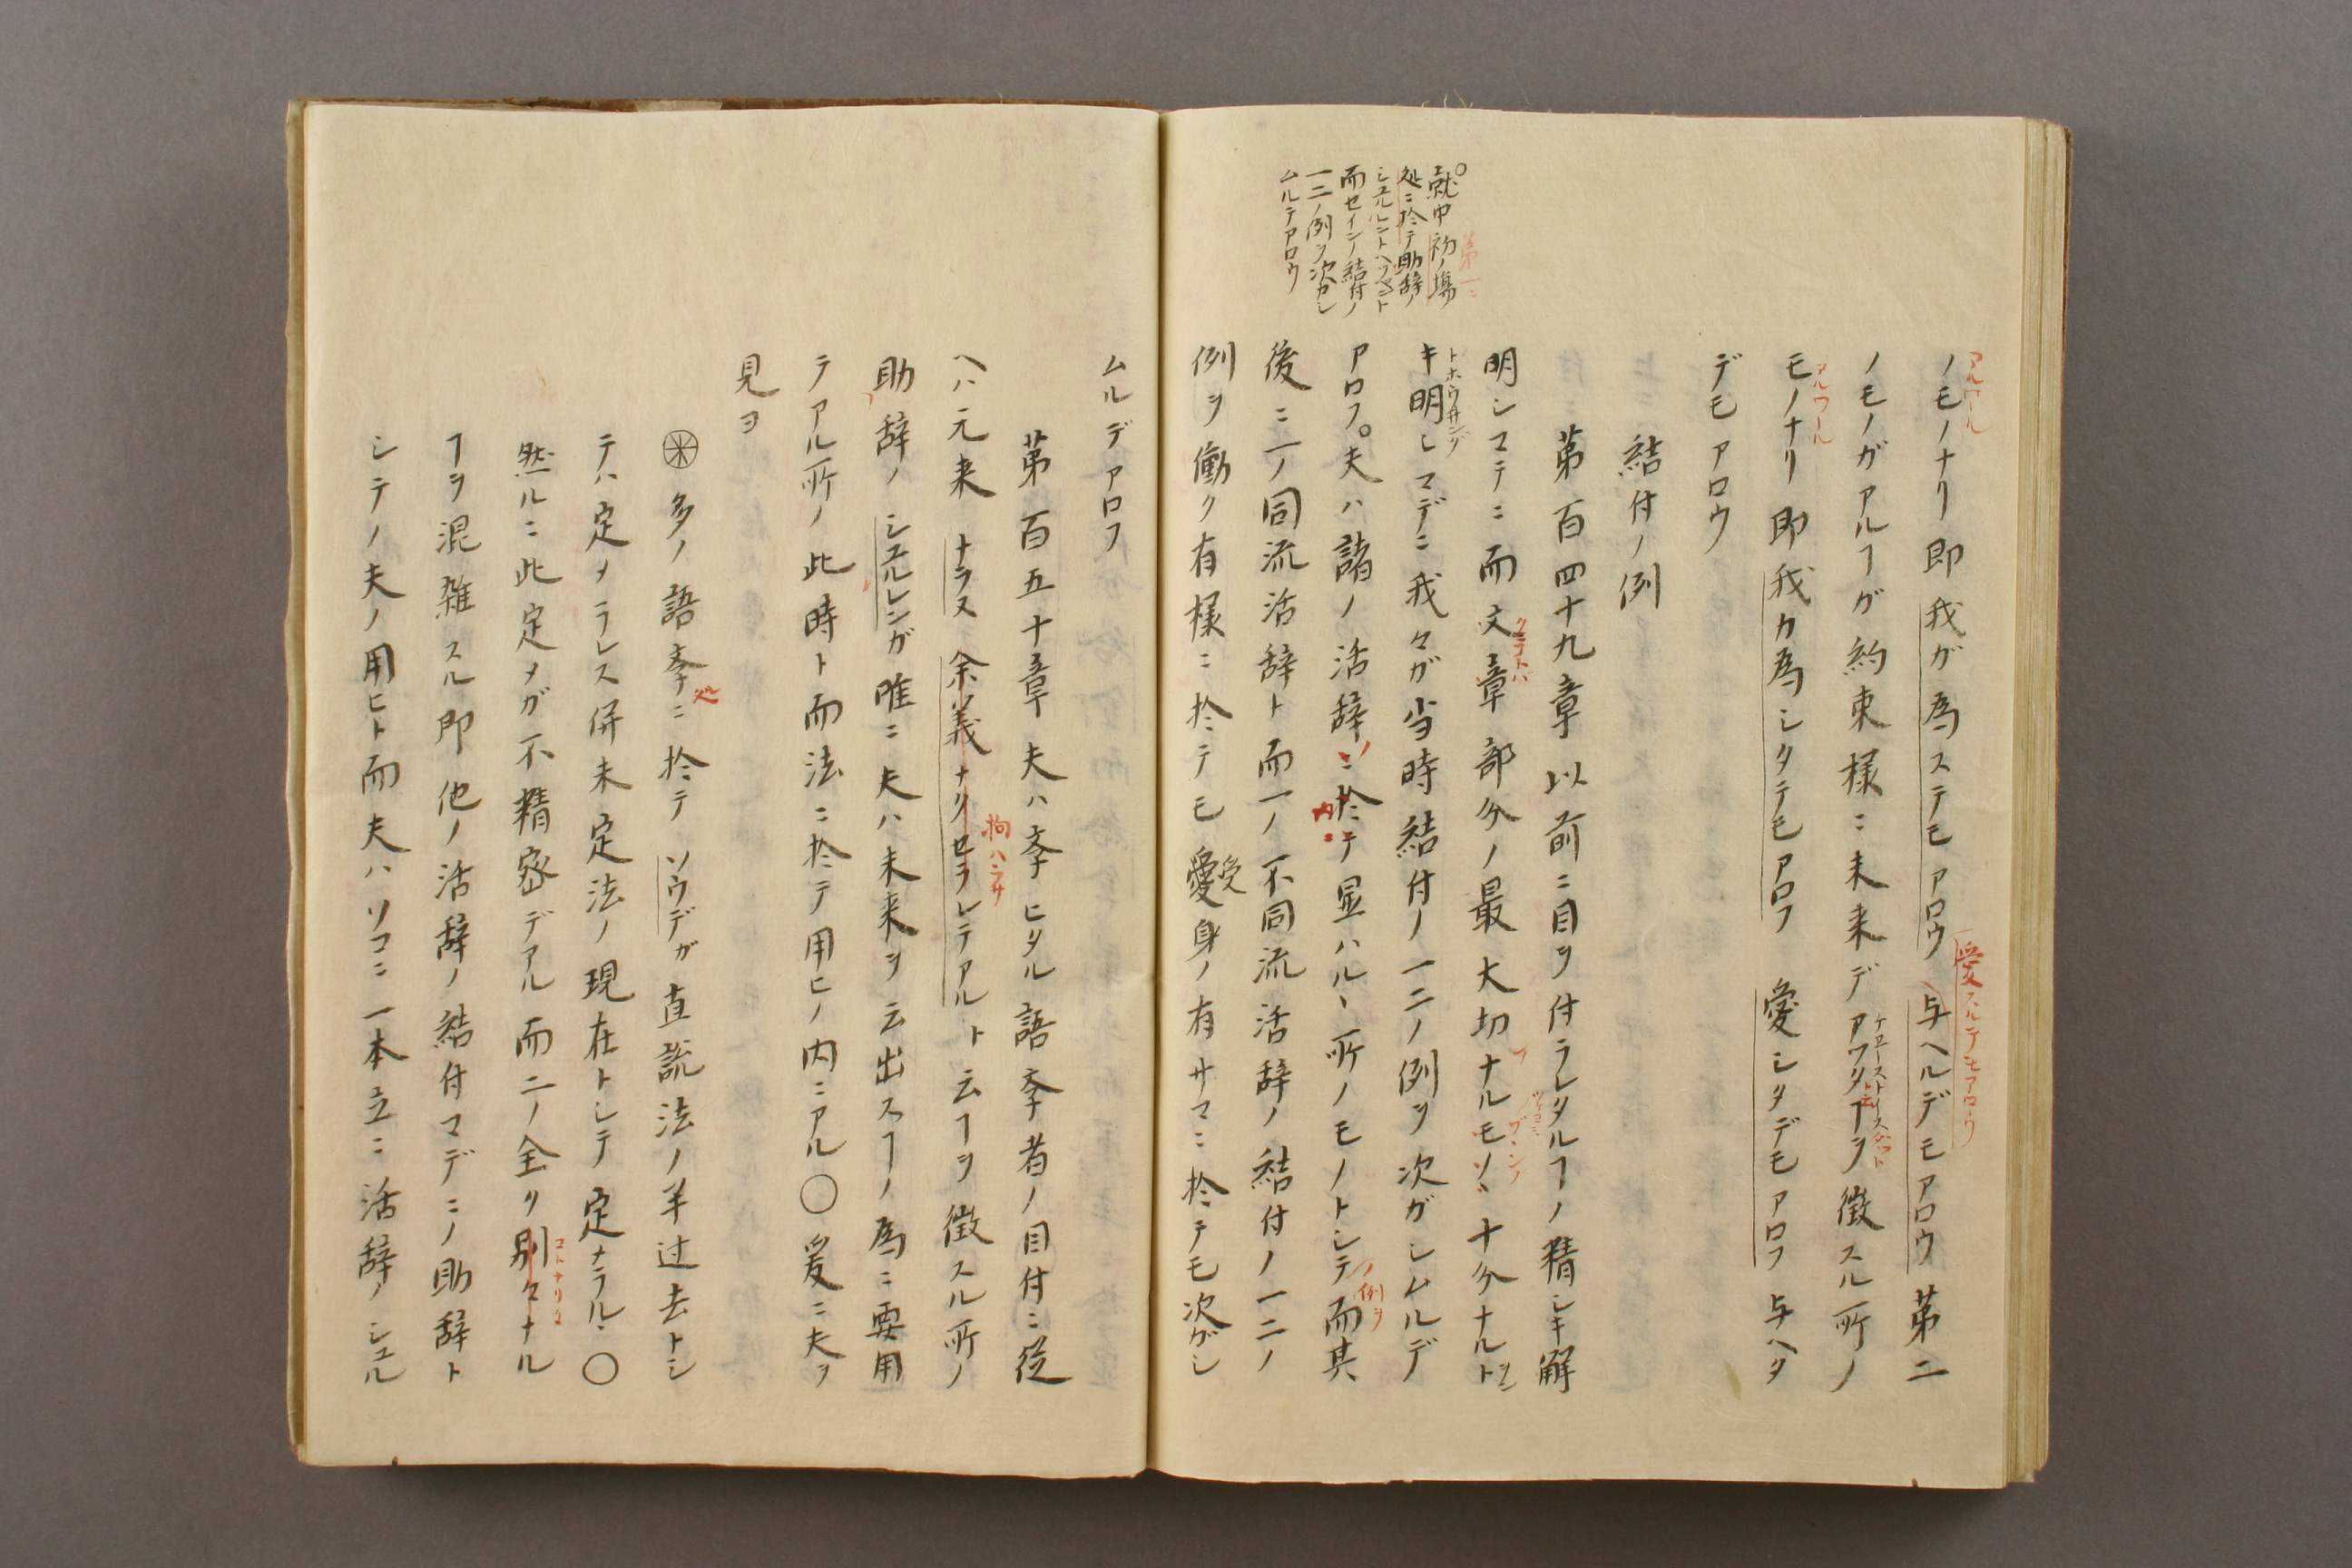 ノモノナリ即我ガ為ステモアロウ与ヘルデモアロウ第二
アルワール
愛スルテモアロウ
ノモノガアルヿガ約束様ニ未来デアワタヿヲ徴スル所ノ
モノナリ即我カ為シタテモアロフ 愛シタデモアロフ 与ヘタ
アルワール
デモアロウ
結付ノ例
第百四十九章以前ニ目ヲ付ラレタルヿノ精シキ解
明シマテニ而文章部分ノ最大切ナルモノ十分ナルト
キ明シマデニ我々ガ当時結付ノ一二ノ例ヲ次ガシムルデ
アロフ。夫ハ諸ノ活辞ニ於テ显ハルヽ所ノモノトシテ而其
ノ例ヲ
後ニ一ノ同流活辞ト而一ノ不同流活辞ノ結付ノ一二ノ
例ヲ働ク有様ニ於テモ愛身ノ有サマニ於テモ次ガシ
受
○就中初ノ塲
第一ニ
処ニ於テ助辞ノ
シユルレントヘツベント
而セインノ結付ノ
一二ノ例ヲ次カシ
ムルテアロウ
ムルデアロフ
第百五十章夫ハ孝ヒタル語孝者ノ目付ニ従
ヘハ元来ナラス余義ナクセラレテアルト云ヿヲ徴スル所ノ
拘ハラサ
助辞ノシユルレンガ唯ニ夫ハ未来ヲ云出スヿノ為ニ要用
テアル所ノ此時ト而法ニ於テ用ヒノ内ニアル○爰ニ夫ヲ
見ヨ
多ノ語孝ニ於テソウデガ直説法ノ半过去トシ
処
テハ定メラレス併未定法ノ現在トシテ定ナラル○
然ルニ此定メガ不精密デアル而二ノ全ク別々ナル
ヿヲ混雑スル即他ノ活辞ノ結付マデニノ助辞ト
シテノ夫ノ用ヒト而夫ハソコニ一本立ニ活辞ノシユル